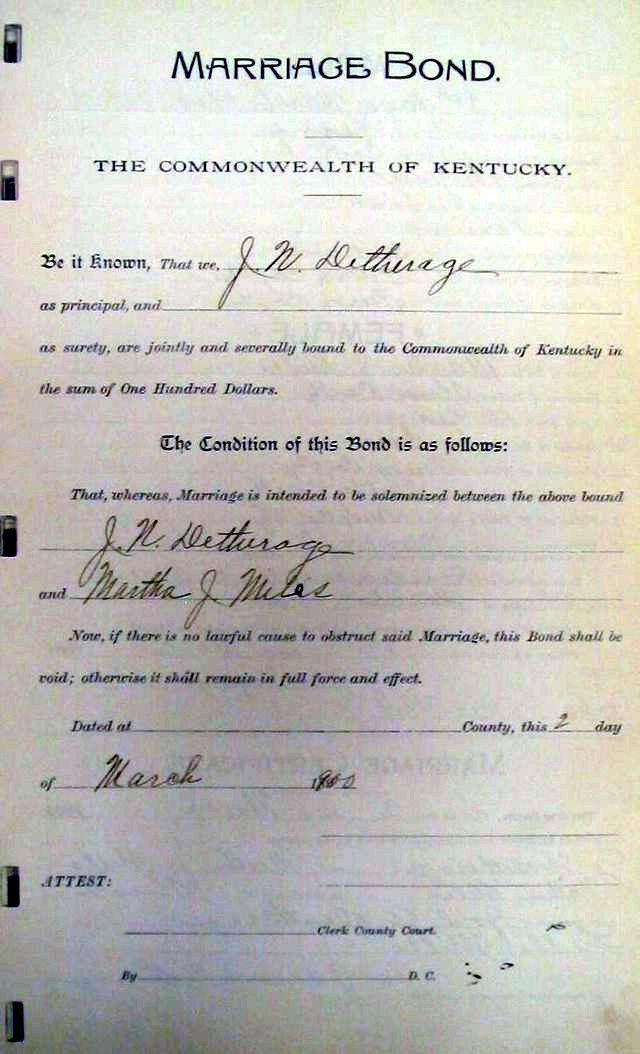 MARRIAGE BOND.
THE COMMONWEALTH OF KENTUCKY.
Be it Known, That we, J. N. Detherage
as principal, and
as surety, are jointly and severally bound to the Commonwealth of Kentucky in
the sum of One Hundred Dollars.
The Condition of this Bond is as follows:
That, whereas, Marriage is intended to be solemnized between the above bound
J. N. Detherage
and Martha J Miles
Now, if there is no lawful cause to obstruct said Marriage, this Bond shall be
void; otherwise it shall remain in full force and effect.
Dated at County, this 2 day
of March 1900
ATTEST:
Clerk County Court.
By D. C.